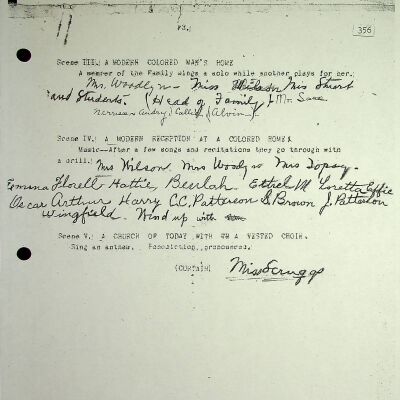 #3.
356
Scene III. A MODERN COLORED MAN'S HOME
A memrer of the Family wings a solo while another plays for her.
Mr. Woodlyn - Miss Miss Stuart
and Students. (Head of Family) Mr.
Audry) Alvin
Scene IV. A MODERN RECEPTION AT A COLORED HOME
Music—After a few songs and recitations they go through with
a drill.
Mrs Wilson Mrs Woodlyn Mrs Topsey.
Emma Florell Hattie, Beulah Ethel M Loretta Effie
Oscar Arthur Harry C.C. Patterson S. Brown J. Patterson
Wingfield. Wind up with
Scene V. A CHURCH OF TODAY WITH A VESTED CHOIR.
Sing an anthem. pronounced.
(CURTAIN)
Miss Scruggs